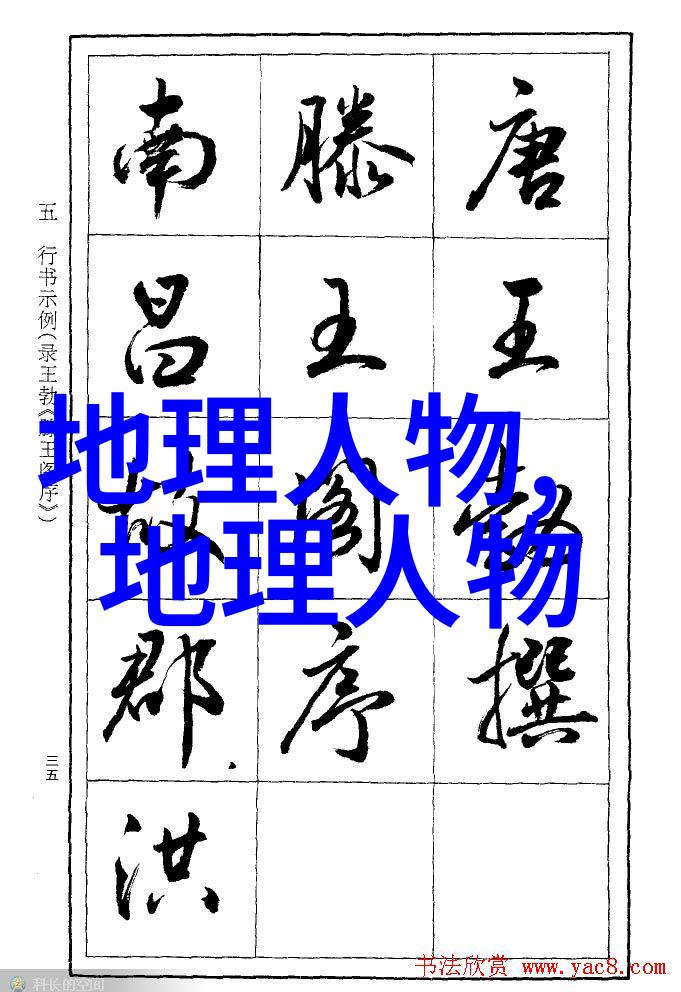 唐王勃撰
滕王阁序
南昌故郡洪
五 行书示例(录王勃《滕王阁序》)
三五
地理人物,
地理人物
书法欣赏 www.yac8.com
科长的空间